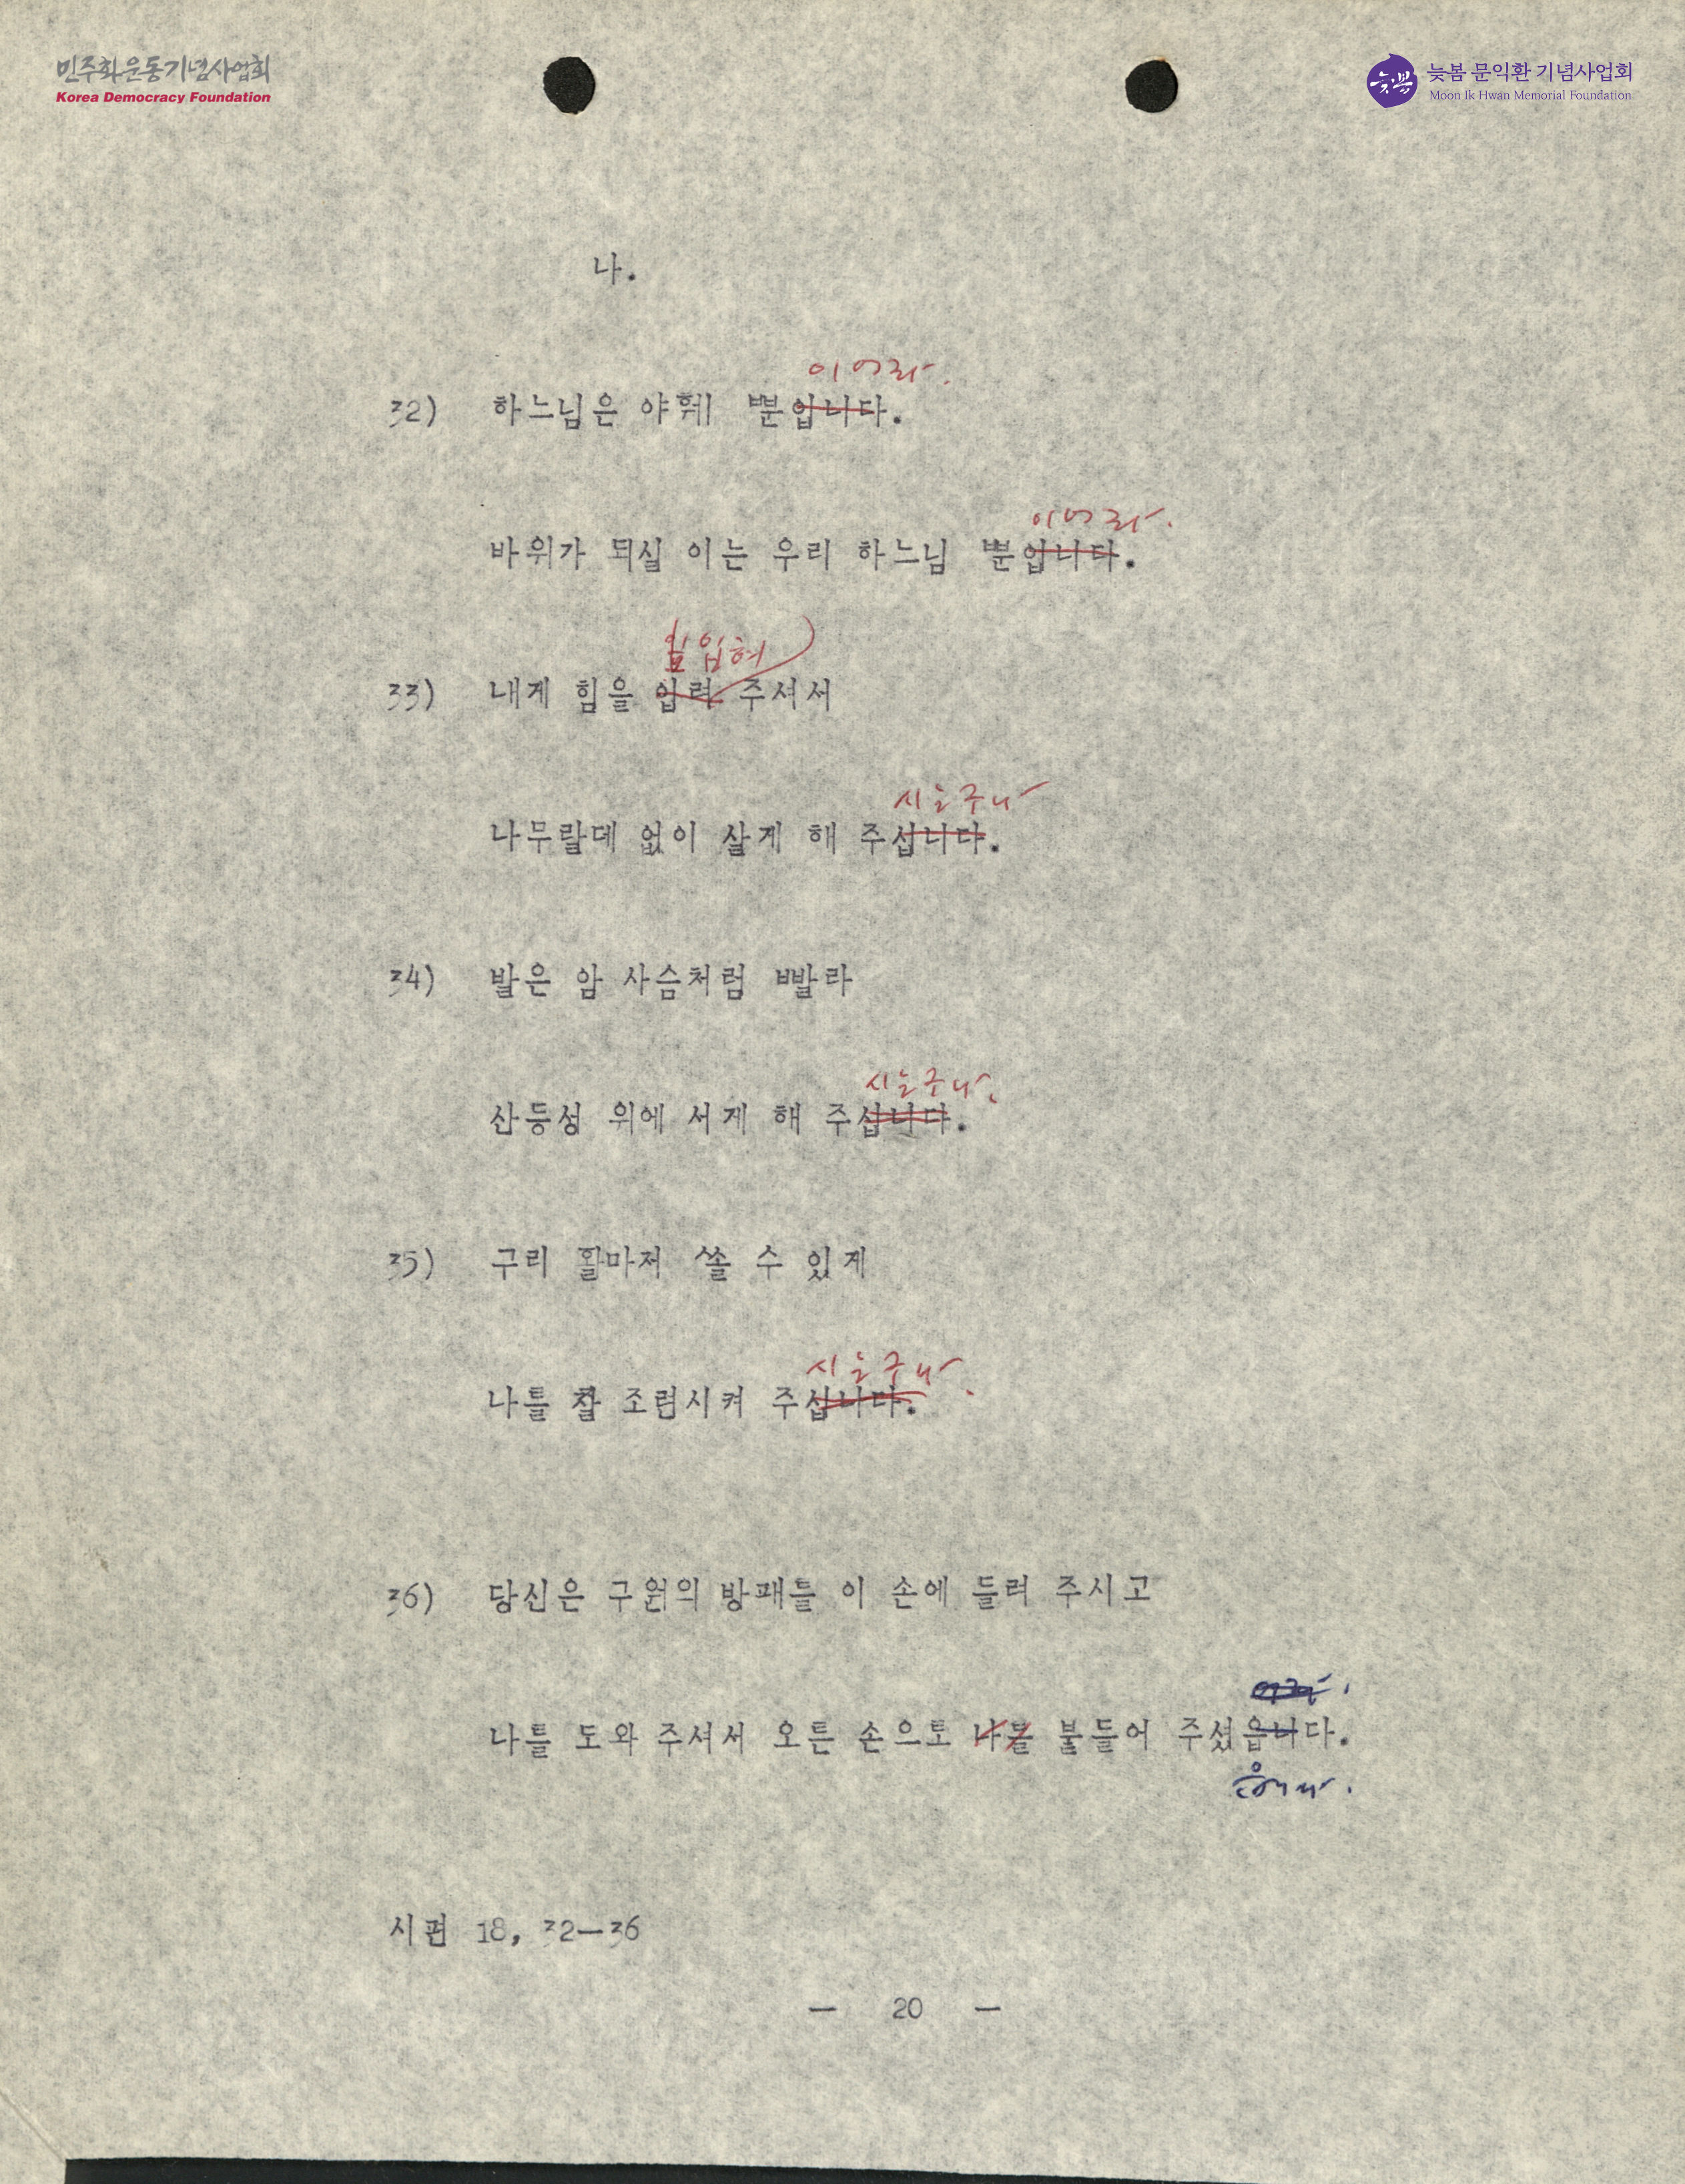 민주화운동기념사업회
Korea Democracy Foundation
늦봄
늦봄 문익환 기념사업회
Moon Ik Hwan Memorial Foundation
나.
이어라.
32) 하느님은 야훼 뿐입니다.
이어라.
바위가 되실 이는 우리 하느님 뿐입니다.
입혀
33) 내게 힘을 입려 주셔서
시는구나
나무랄데 없이 살게 해 주십니다.
34) 발은 암 사슴처럼 빨라
시는구나.
산등성 위에 서게 해 주십니다.
35) 구리 활마저 쏠 수 있게
시는구나.
나를 잘 조련시켜 주십니다.
36) 당신은 구원의 방패를 이 손에 들려 주시고
나를 도와 주셔서 오른 손으로 나를 붙들어 주셨읍니다.
시편 18, 32—36
— 20 —